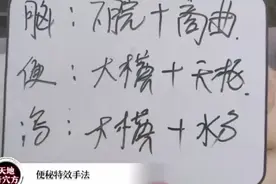 ：＋商曲
便：大横＋天枢
泻：大横＋水分
天地
穴方
便秘特效手法